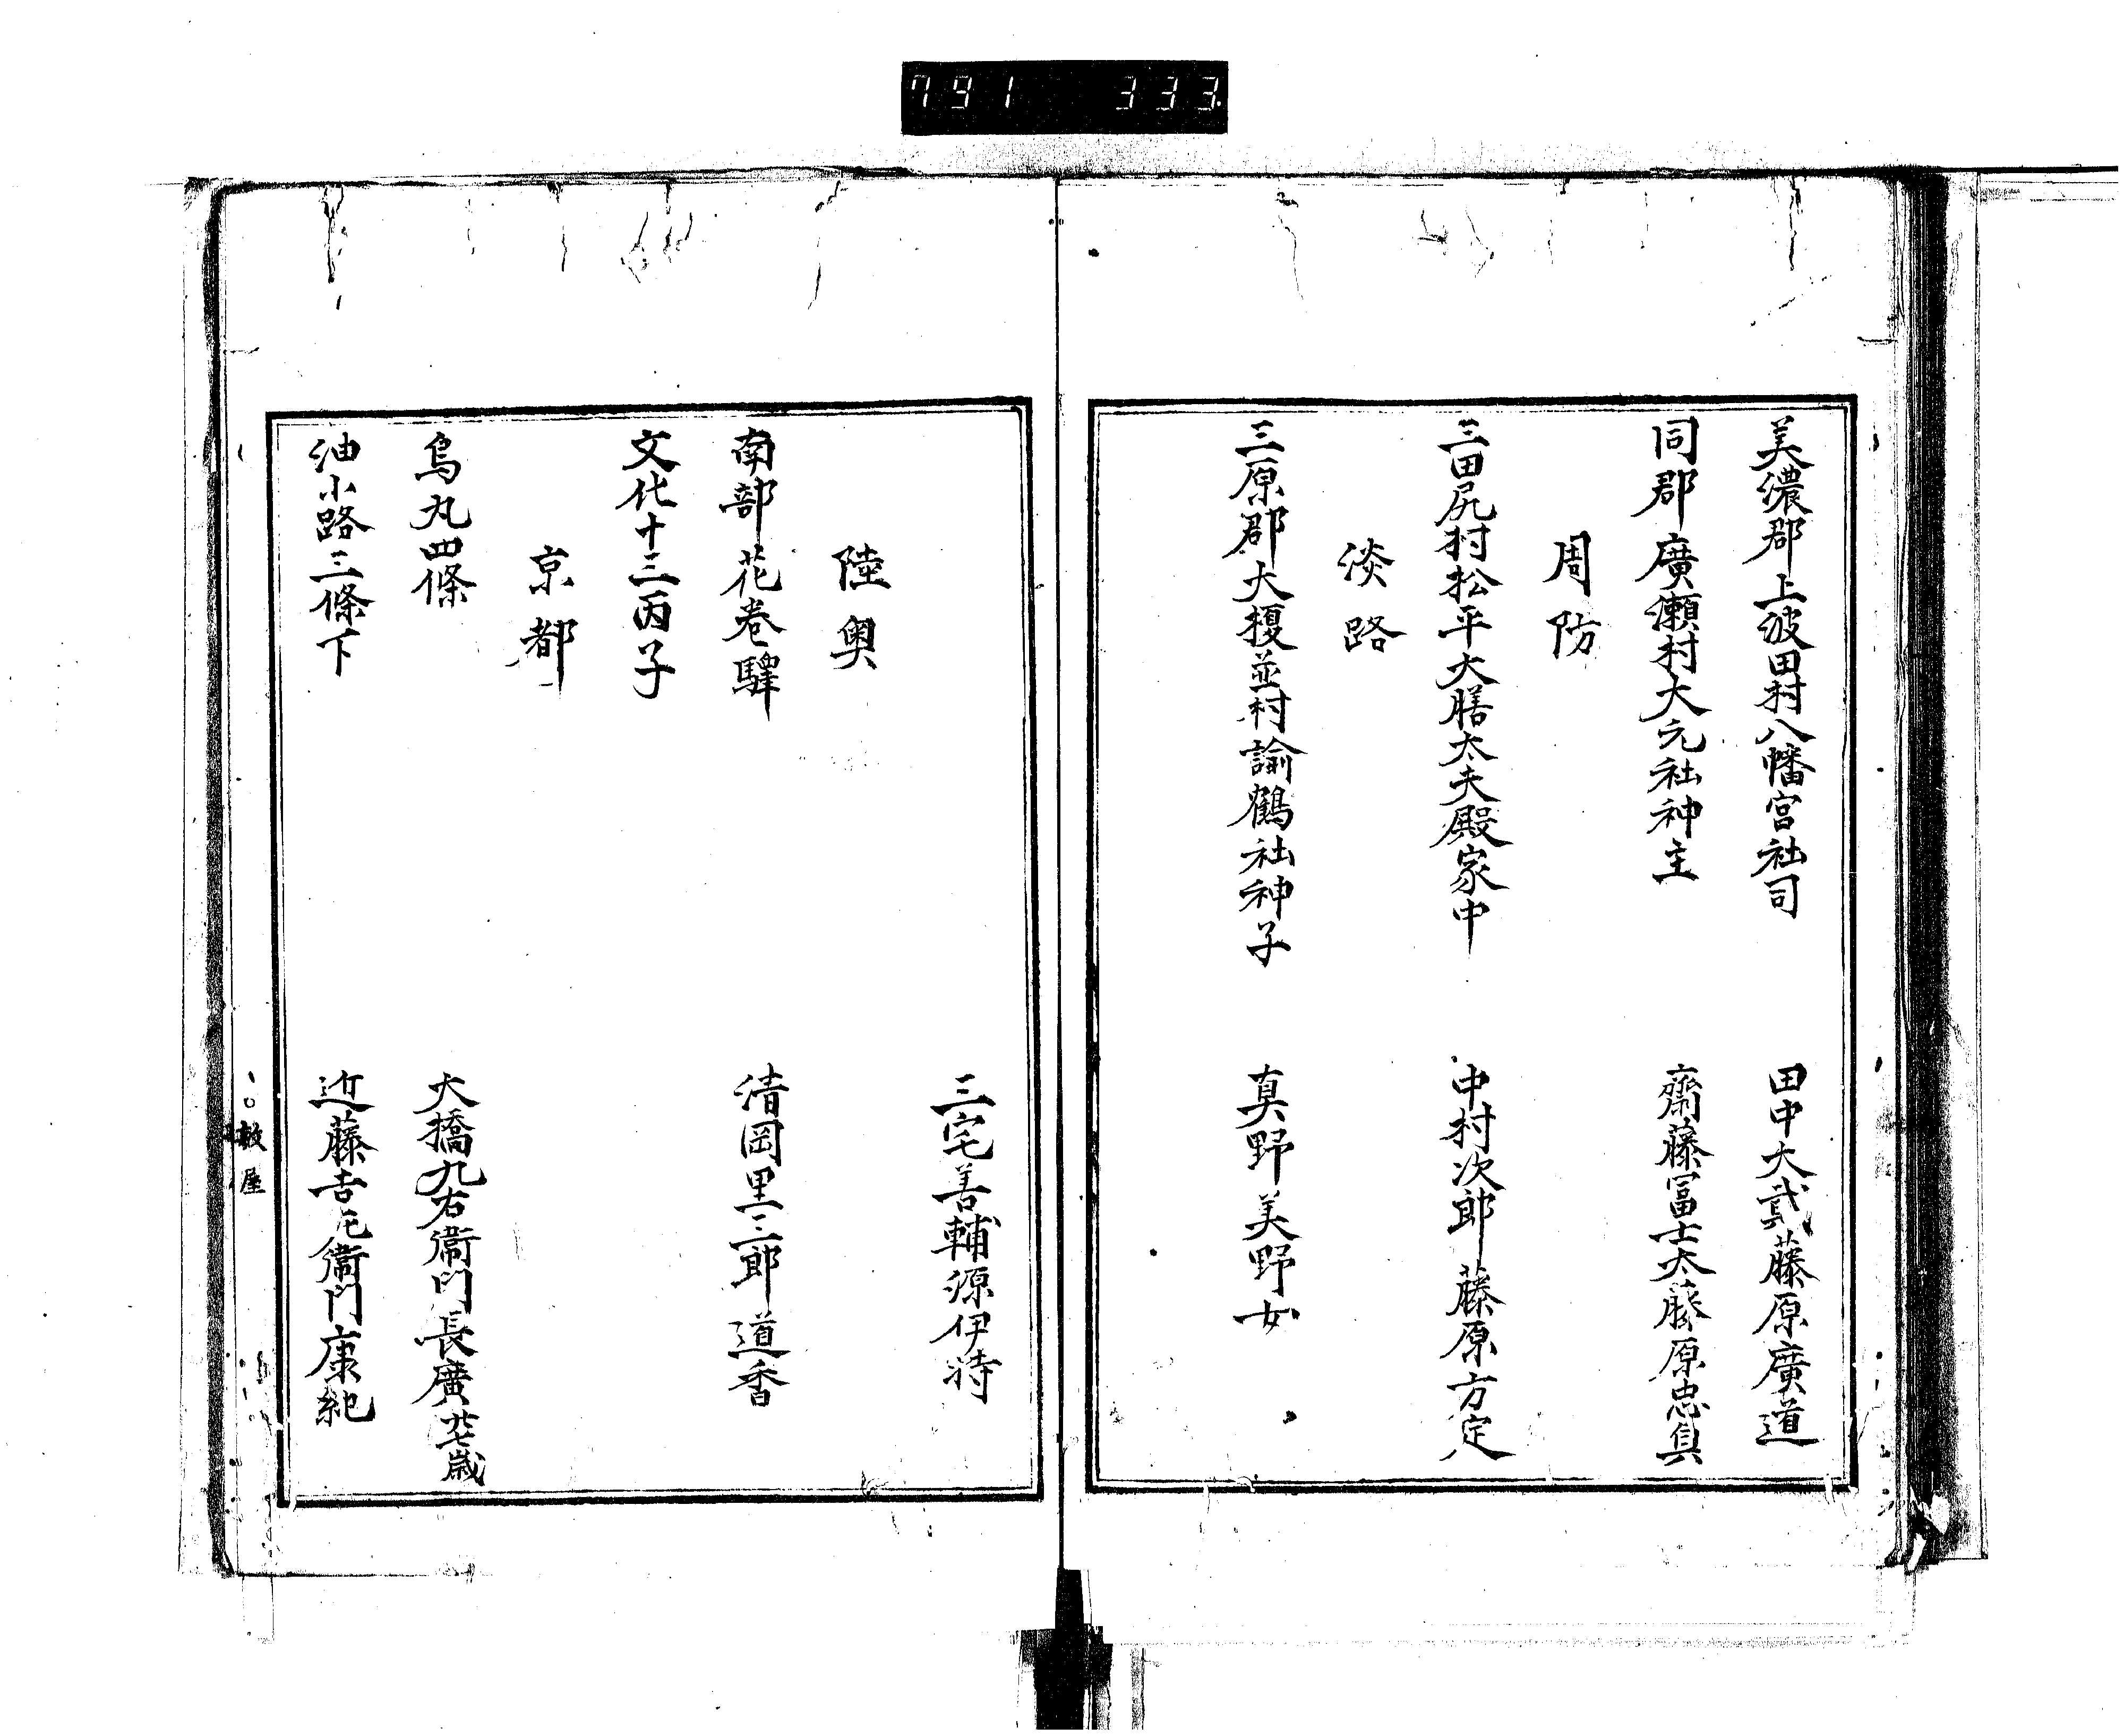 791 333
美濃郡上波田村八幡宮社司 田中大貳藤原廣道
同郡廣瀬村大元社神主 齋藤冨士太藤原忠具
周防
三田尻村松平大膳太夫殿家中 中村次郎藤原方定
淡路
三原郡大榎並村諭鶴社神子 真野美野女
三宅善輔源伊特
陸奥
南部花巻驛 清岡里三郎道香
文化十三丙子
京都
烏丸四條 大橋九右衞門長廣 廿七歳
油小路三條下 近藤吉左衞門康純
屋